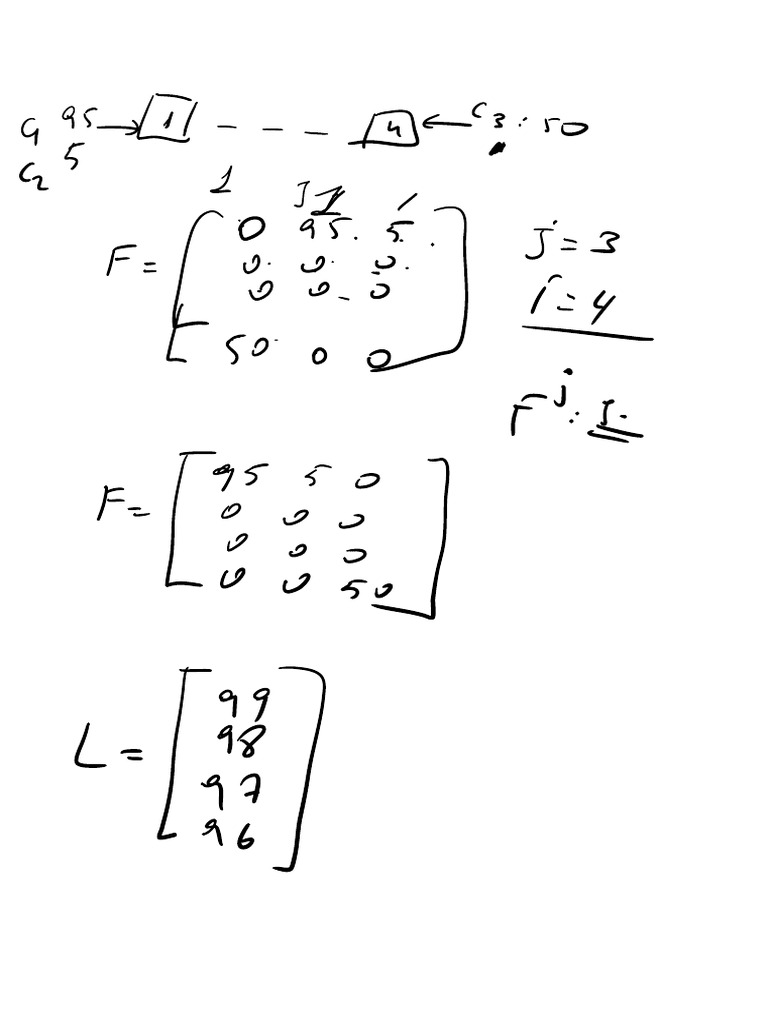 C1 95 → 1 - - - - 4 ← C3 : 50
C2 5
1
F = 0 95. 5.
0. 0. 0.
0 0 - 0
50 0 0
J = 3
i = 4
F = 95 5 0
0 0 0
0 0 0
0 0 50
L = 99
98
97
96